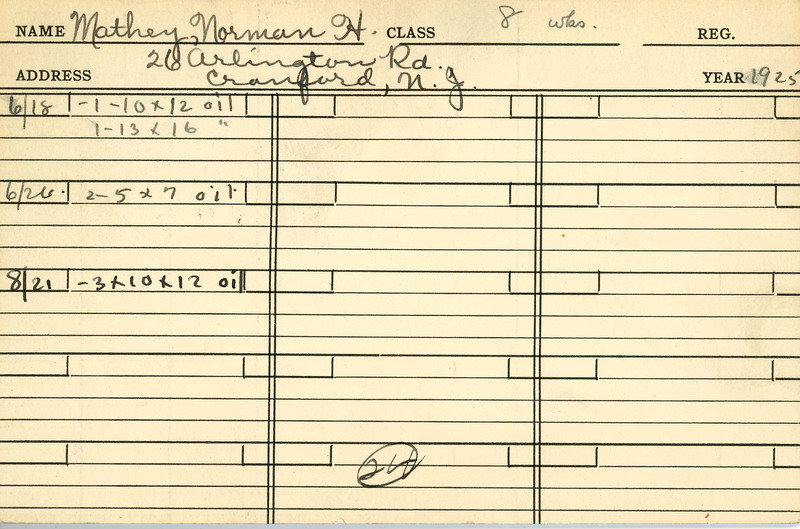 NAME Mathey, Norman H. CLASS 8 wks. REG.
26 Arlington Rd.
ADDRESS Cranford, N. J. YEAR 1925
6/18 -1-10x12 oil
1-13 x 16 "
6/26. 2-5 x 7 oil.
8/21 -3x10x12 oil
24